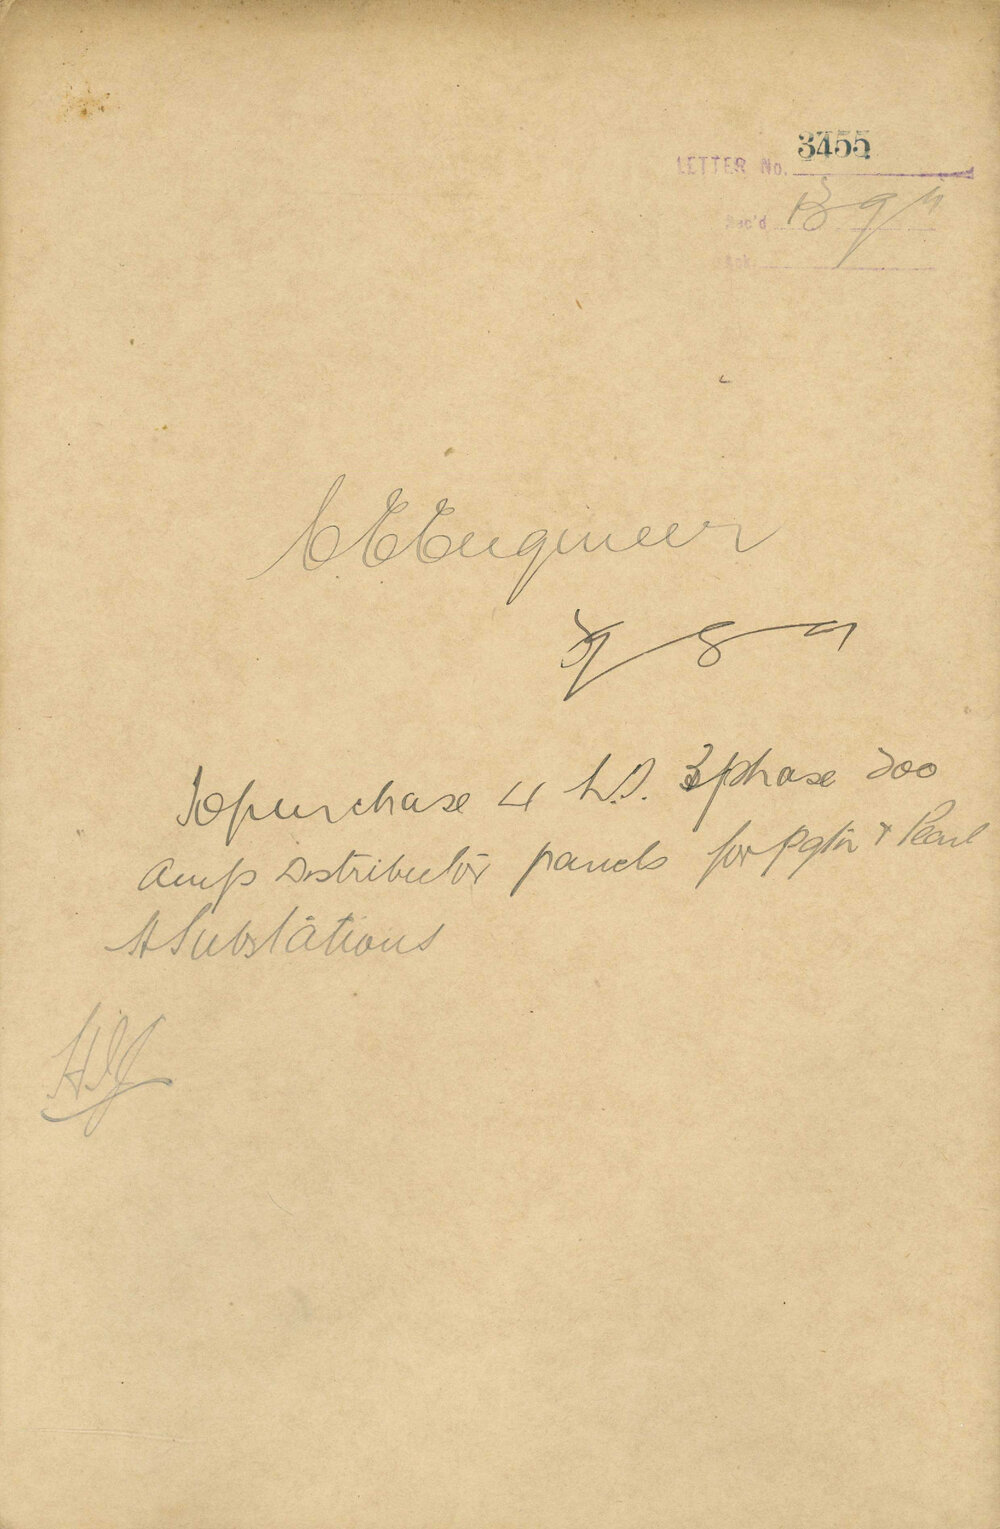 LETTER No. 3455
Rec'd
Ack.
C.E.Engineer
To purchase 4 L.T. 3 phase 200
Amps Distributor panels for Pgtn & Pearl
St Substations